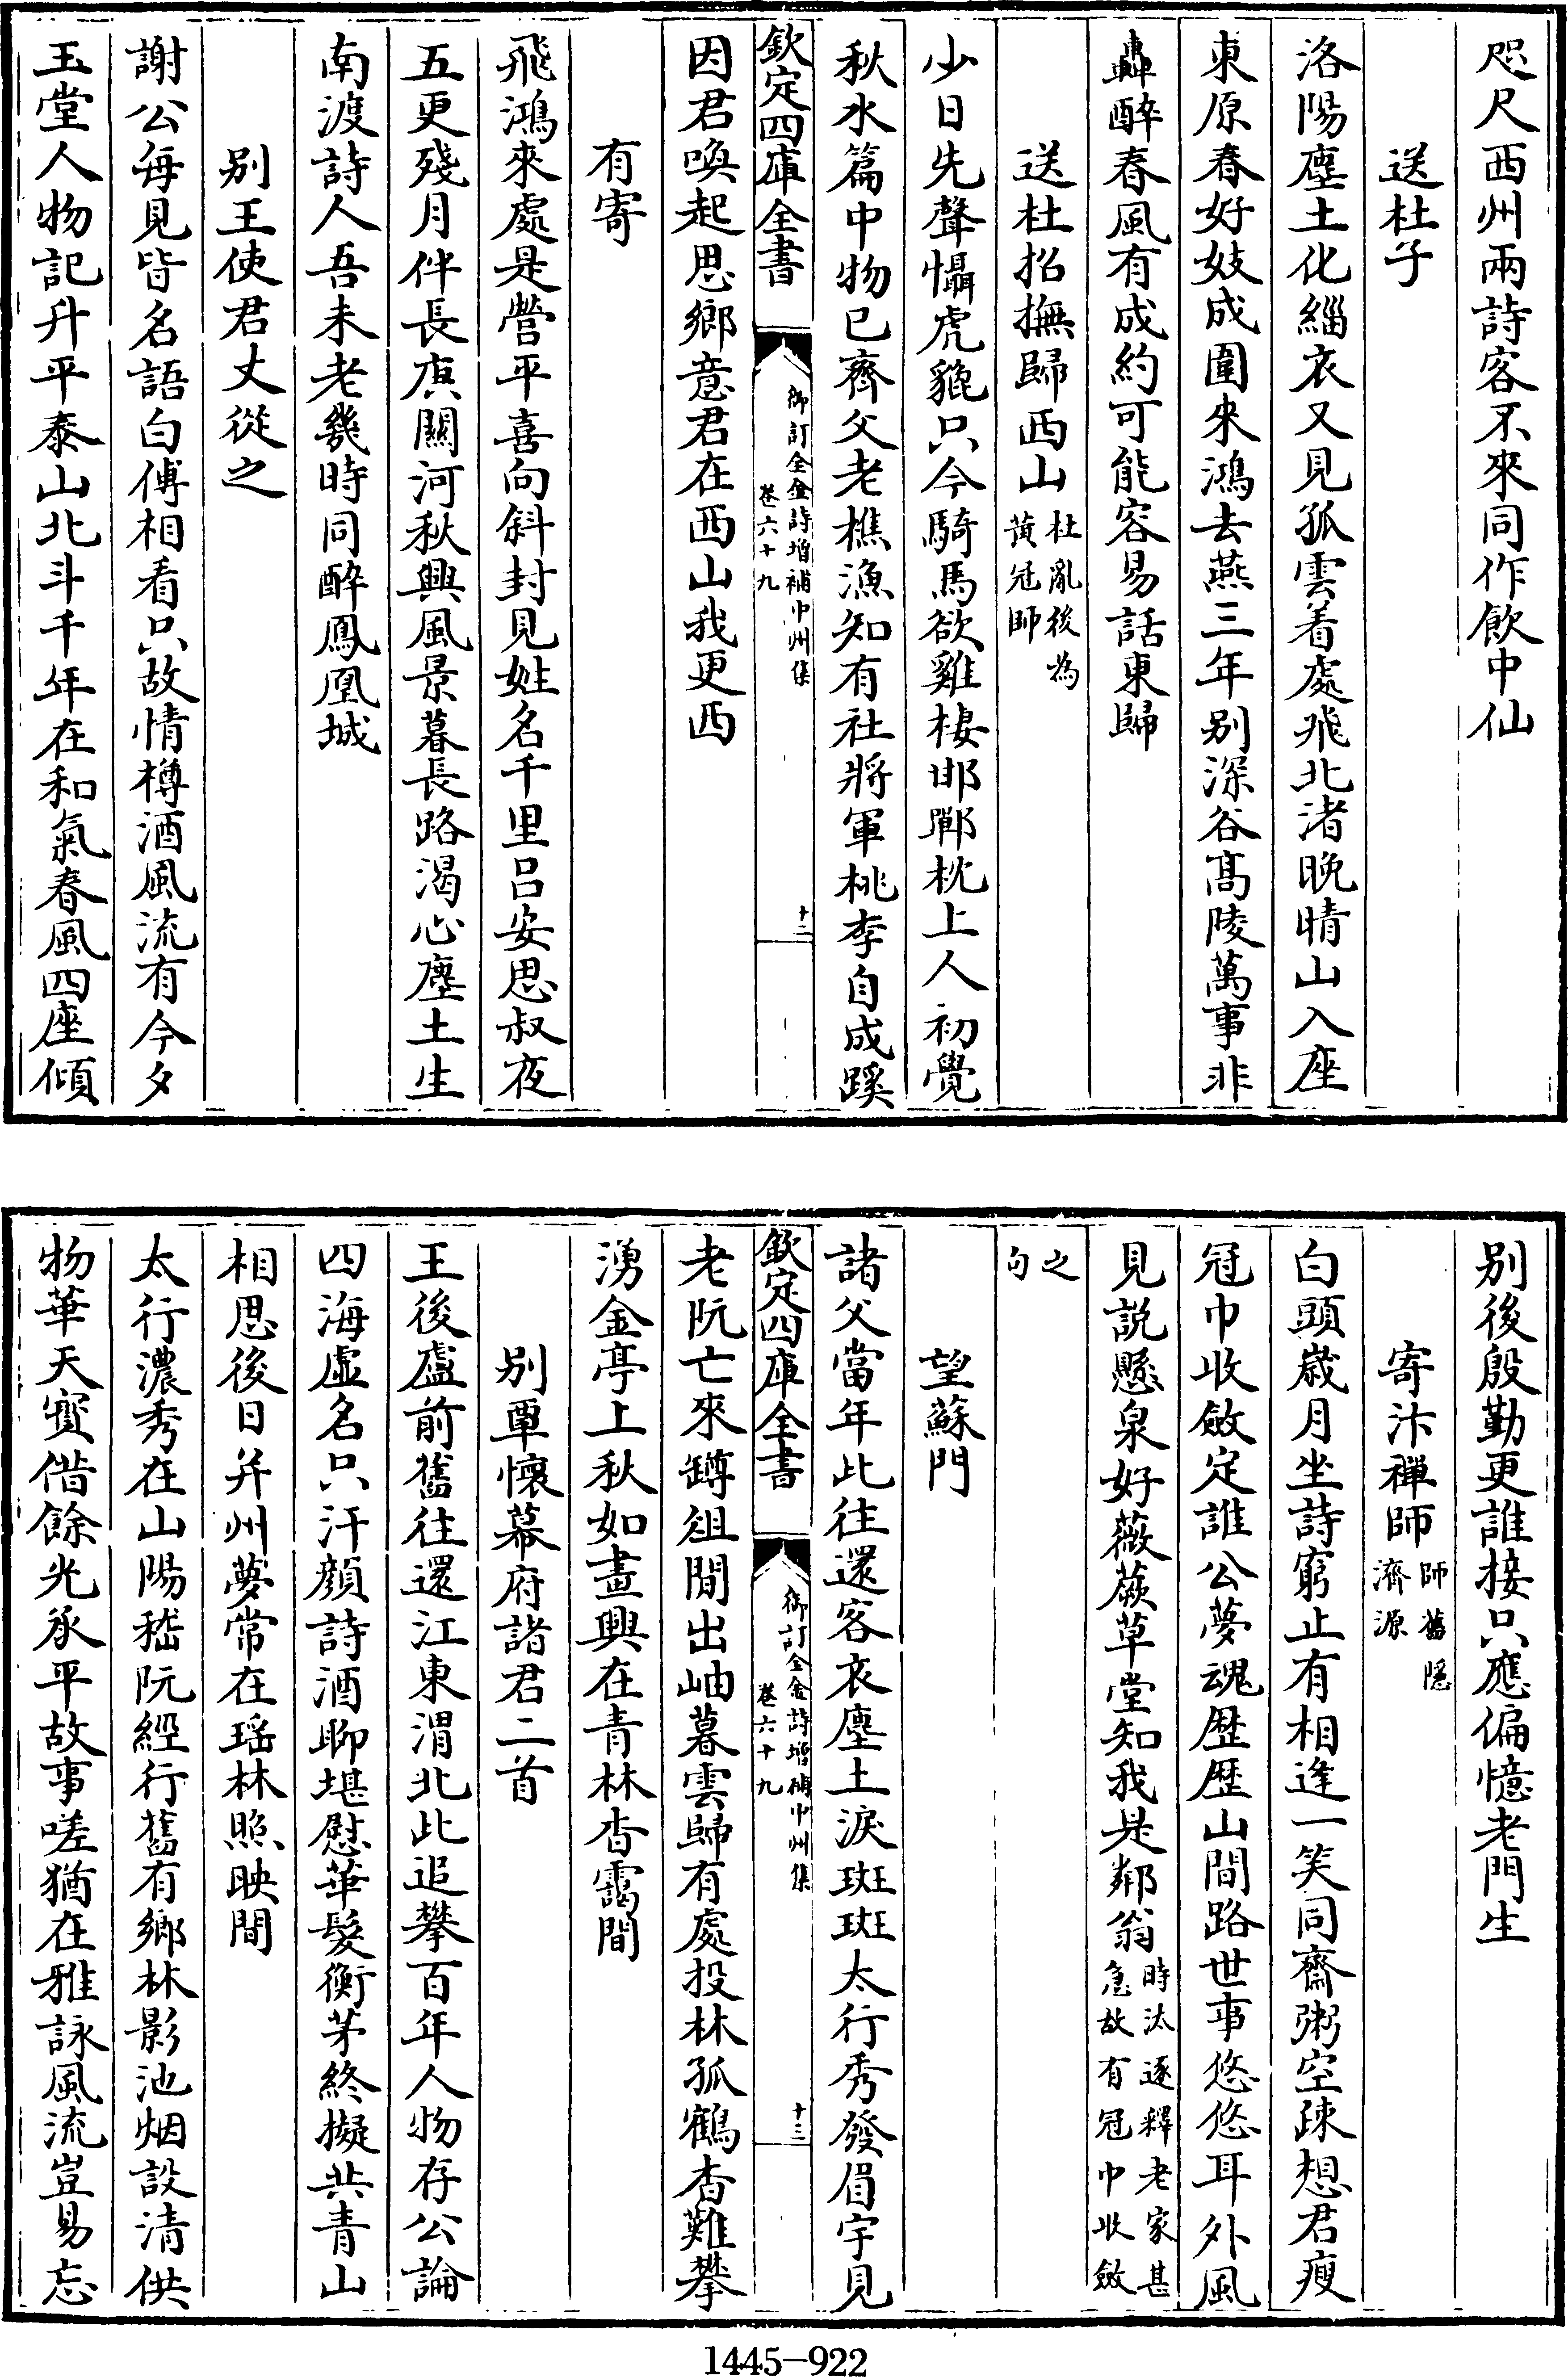 咫尺西州兩詩客不來同作飲中仙
送杜子
洛陽塵土化緇衣又見孤雲着處飛北渚晚晴山入座
東原春好妓成圍來鴻去燕三年别深谷髙陵萬事非
轟醉春風有成約可能容易話東歸
送杜招撫歸西山杜亂後為黄冠師
少日先聲懾虎貔只今騎馬欲雞棲邯鄲枕上人初覺
秋水篇中物已齊父老樵漁知有社將軍桃李自成蹊
欽定四庫全書
御訂全金詩增補中州集
卷六十九
十二
因君喚起思鄉意君在西山我更西
有寄
飛鴻來處是營平喜向斜封見姓名千里吕安思叔夜
五更殘月伴長庚關河秋興風景暮長路渴心塵土生
南渡詩人吾未老幾時同醉鳳凰城
别王使君丈從之
謝公每見皆名語白傅相看只故情樽酒風流有今夕
玉堂人物記升平泰山北斗千年在和氣春風四座傾
别後殷勤更誰接只應偏憶老門生
寄汴禪師師舊隱濟源
白頭嵗月坐詩窮止有相逢一笑同齋粥空疎想君瘦
冠巾收斂定誰公夢魂歴歴山間路世事悠悠耳外風
見説懸泉好薇蕨草堂知我是鄰翁時汰逐釋老家甚急故有冠巾收斂
之句
望蘇門
諸父當年此往還客衣塵土淚斑斑太行秀發眉宇見
欽定四庫全書
御訂全金詩增補中州集
卷六十九
十三
老阮亡來罇俎閒出岫暮雲歸有處投林孤鶴杳難攀
湧金亭上秋如畫興在青林杳靄間
别覃懷幕府諸君二首
王後盧前舊往還江東渭北此追攀百年人物存公論
四海虚名只汗顔詩酒聊堪慰華髮衡茅終擬共青山
相思後日并州夢常在瑶林照映間
太行濃秀在山陽嵇阮經行舊有鄉林影池烟設清供
物華天寳借餘光承平故事嗟猶在雅詠風流豈易忘
1445-922